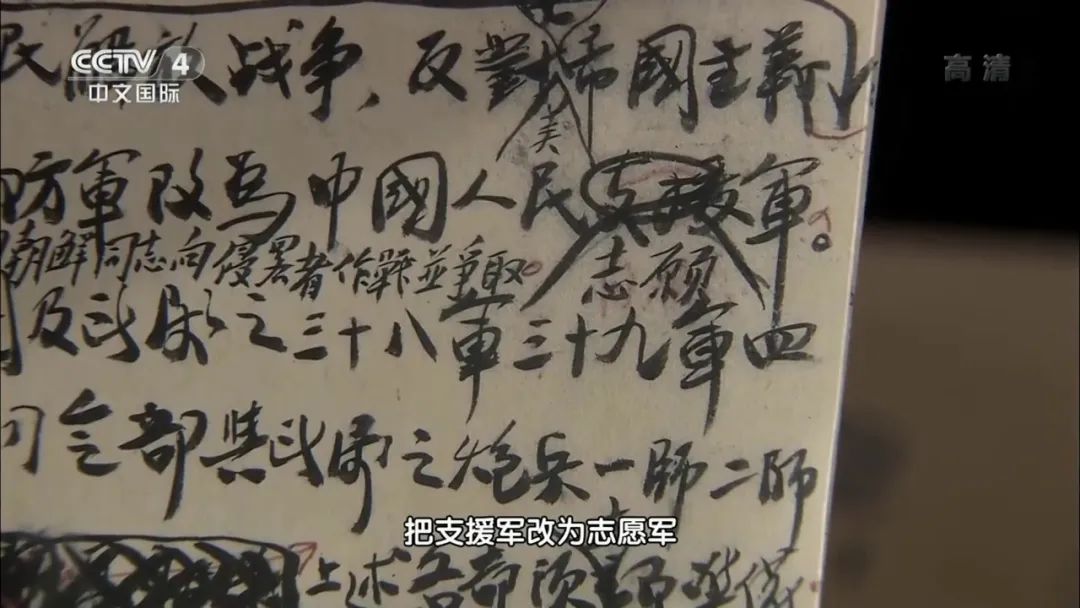 CCTV 4
中文国际
高清
民解放战争，反對美帝國主義
防軍改為中國人民志願軍。
朝鮮同志向侵畧者作戰並爭取
及所屬之三十八軍三十九軍四
司令部與所屬之炮兵一師二師
把支援军改为志愿军
上述各部须